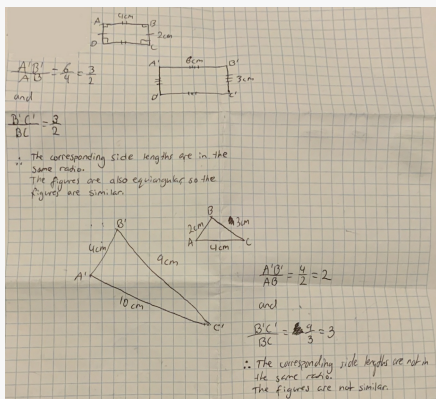 4cm
A B
2cm
D C
A' 6cm B'
3cm
D' C'
A'B'/AB = 6/4 = 3/2
and
B'C'/BC = 3/2
∴ The corresponding side lengths are in the
same radio.
The figures are also equiangular so the
figures are similar.
B'
4cm 9cm
A'
10cm
C'
B
2cm 3cm
A C
4cm
A'B'/AB = 4/2 = 2
and
B'C'/BC = 9/3 = 3
∴ The corresponding side lengths are not in
the same radio.
The figures are not similar.